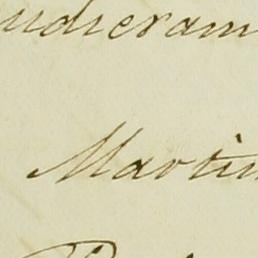 udieram
Martin